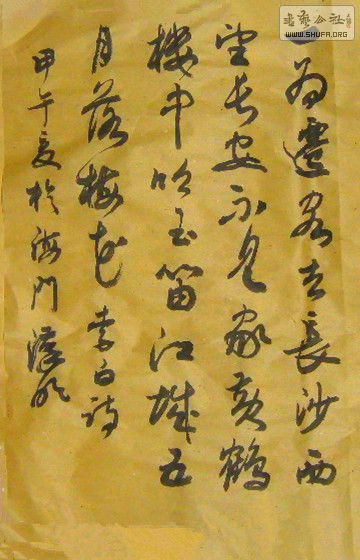 書藝公社
WWW.SHUFA.ORG
一为遷客去長沙西
望长安不见家黄鶴
楼中吹玉笛江城五
月落梅花 李白诗
甲午夏於海门